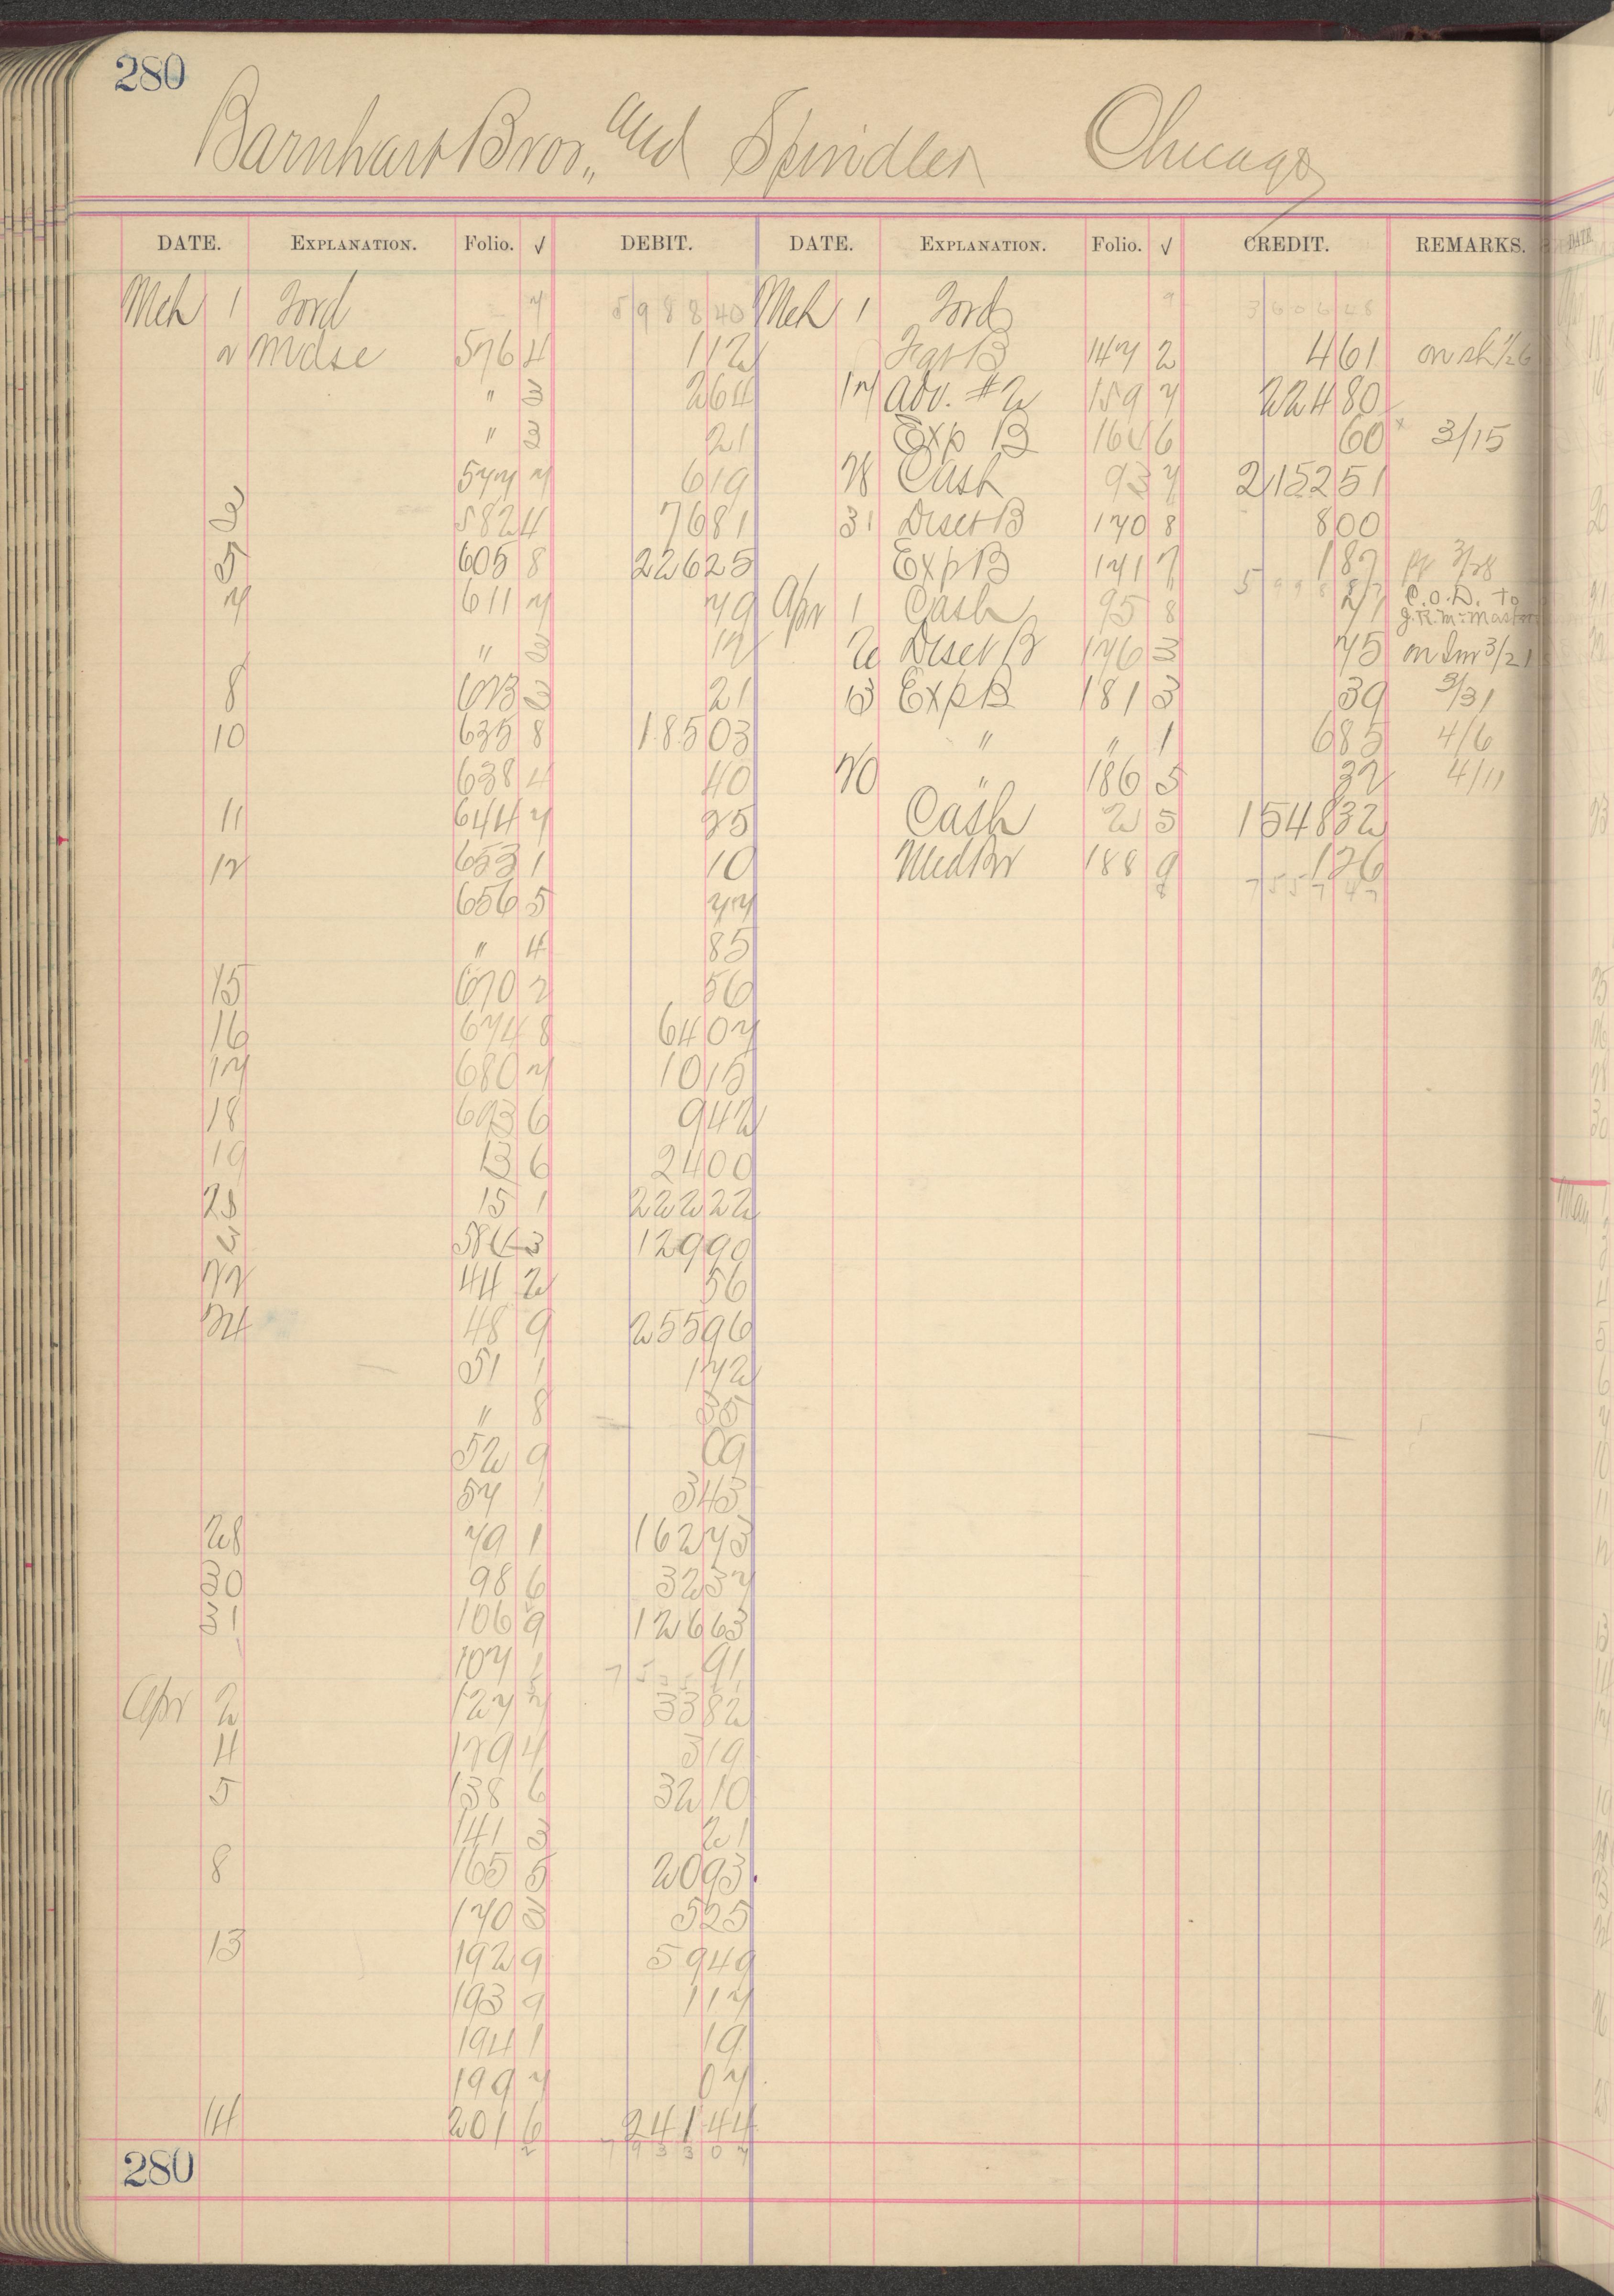 280
Barnhart Bros., and Spindler Chicago
DATE. EXPLANATION. Folio. √ DEBIT. DATE. EXPLANATION. Folio. √ CREDIT. REMARKS.
Mch 1 Ford 7 5988 40 Mch 1 Ford 9
2 Mdse 576 4 1 12 B 147 2 4 61 on sh
" 3 2 64 17 Adv. #2 159 7 224 80
" 3 21 Exp B 6 60 3/15
577 7 6 19 28 Cash 93 7 2152 51
3 582 4 76 81 31 Disct B 170 8 8 00
5 605 8 226 25 Exp B 171 7 1 87 3/28
7 611 7 79 Apr 1 Cash 95 8 27 C.O.D. to
" 3 12 2 Disct B 176 3 75 on Inv 3/21
8 623 3 21 13 Exp B 181 3 39 3/31
10 635 8 185 03 " " 1 6 85 4/6
638 4 40 20 " 186 5 32 4/11
11 644 7 25 Cash 2 5 1548 32
12 653 1 10 188 9 1 26
656 5 77
" 4 85
15 670 2 56
16 674 8 64 07
17 680 7 10 15
18 693 6 9 42
19 13 6 24 00
15 1 222 22
3 3 129 90
22 44 2 56
24 48 9 255 96
51 1 1 72
" 8 35
52 9 69
57 1 3 43
28 79 1 162 73
30 98 6 32 37
31 106 9 126 63
107 1 91
Apr 2 127 7 33 82
4 129 4 3 19
5 138 6 32 10
141 3 21
8 165 5 20 93
170 3 5 25
13 192 9 59 49
193 9 1 17
194 1 19
199 7 07
14 201 6 241 44
280